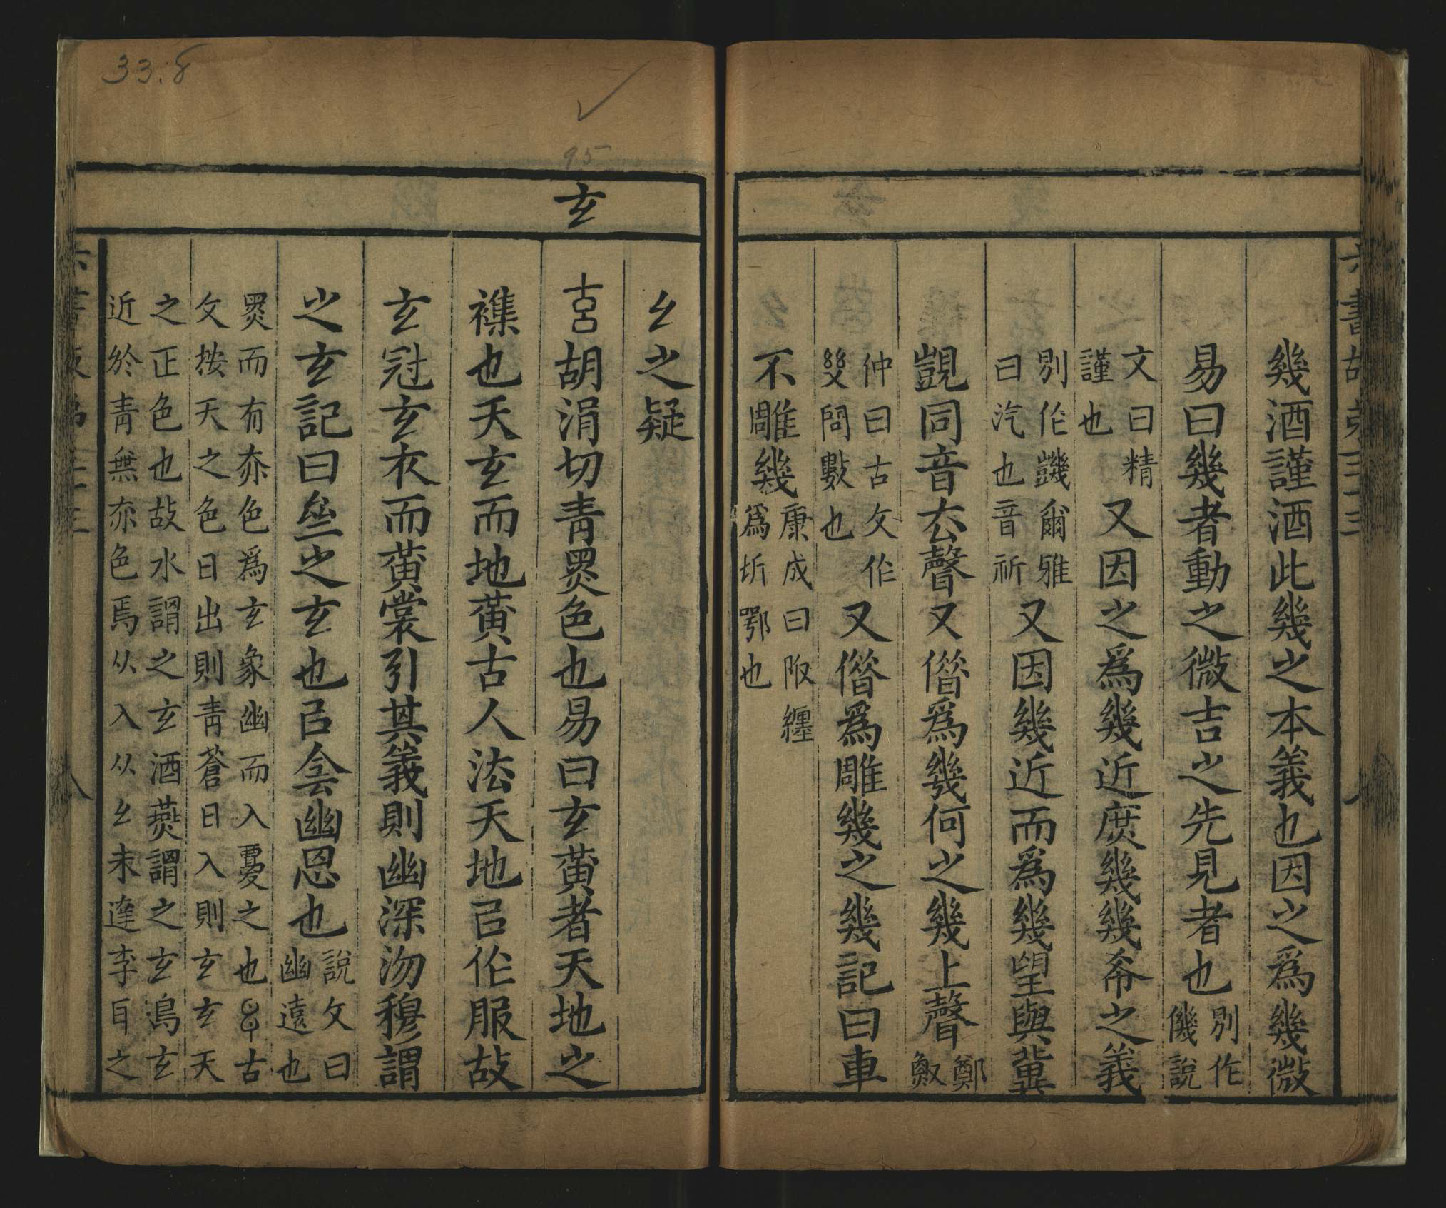 幾酒謹酒此幾之本義也因之爲幾微
易曰幾者動之微吉之先見者也別作
僟說
文曰精
謹也又因之爲幾近庶幾幾希之義
別作䤒爾雅
曰汽也音祈又因幾近而爲幾望與冀
覬同音去聲又借爲幾何之幾上聲鄭
漁
仲曰古文作
㡬問數也又借爲雕幾之幾記曰車
不雕幾康成曰限纏
爲圻鄂也
幺之疑
玄
𤣥胡涓切青黑色也易曰玄黃者天地之
襍也天玄而地黃古人法天地㠯作服故
玄冠玄衣而黃裳引其義則幽深沕穆謂
之玄記曰坐之玄也㠯會幽思也說文曰
幽遠也
黑而有赤色爲玄象幽而入覆之也古
文按天之色日出則靑蒼日入則玄玄天
之正色也故水謂之玄酒燕謂之玄鳥玄
近於靑無赤色焉从入从幺未達李
之
33.8
95